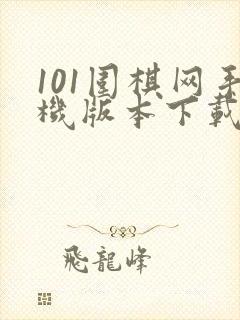 101围棋网手
機版本下載
飛龍峰